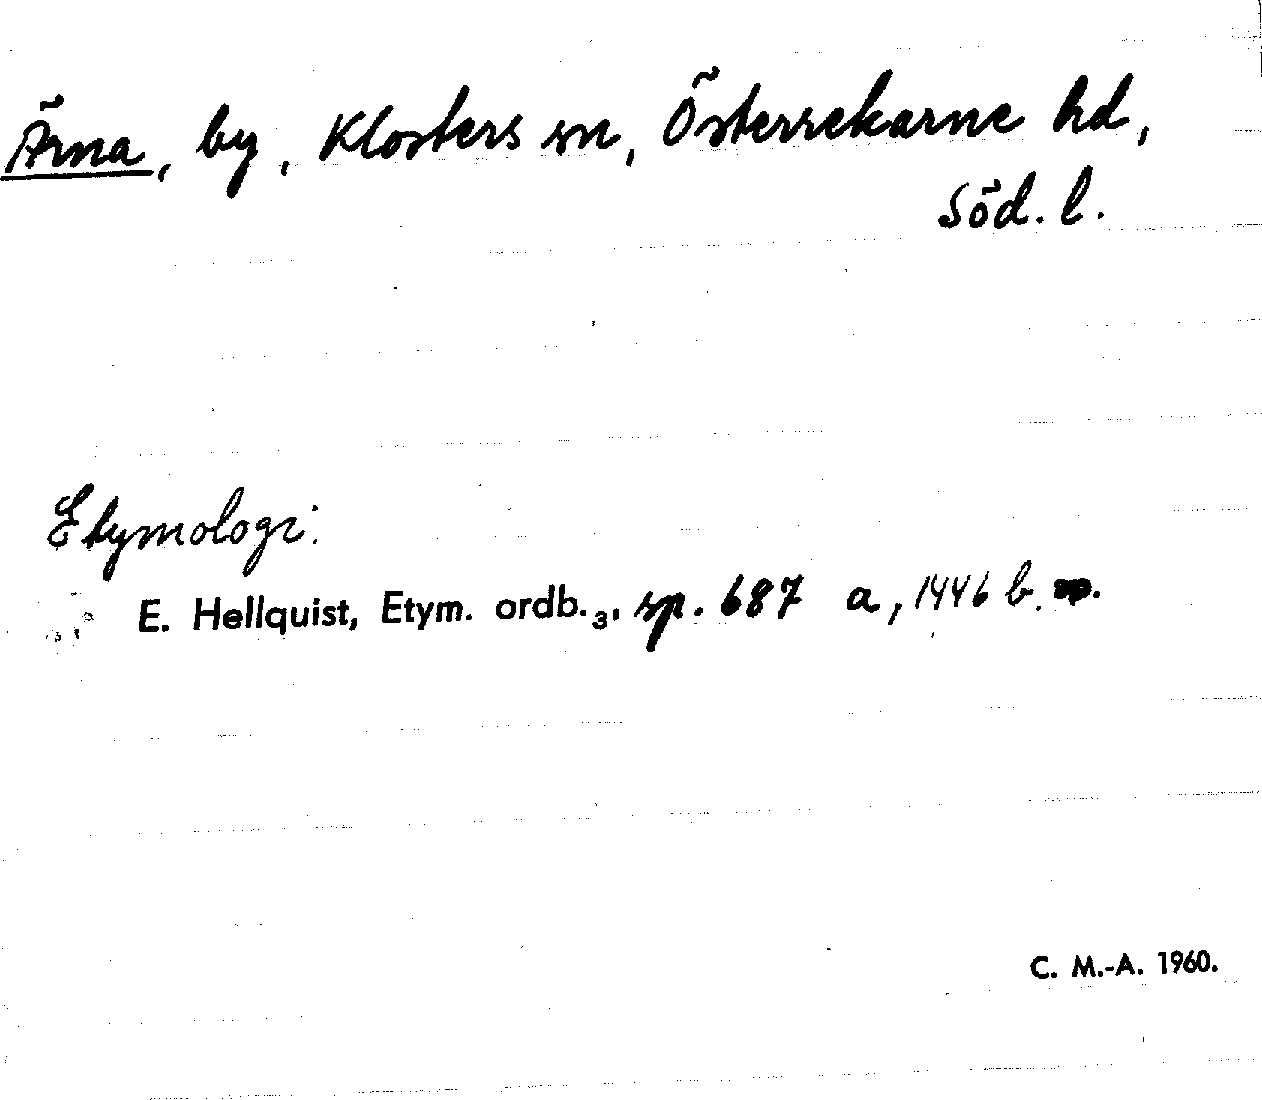 Ärna, by, Klosters sn, Österrekarne hd,
Söd. l.
Etymologi:
E. Hellquist, Etym. ordb.₃, sp. 687 a, 1446 b.
C. M.-A. 1960.